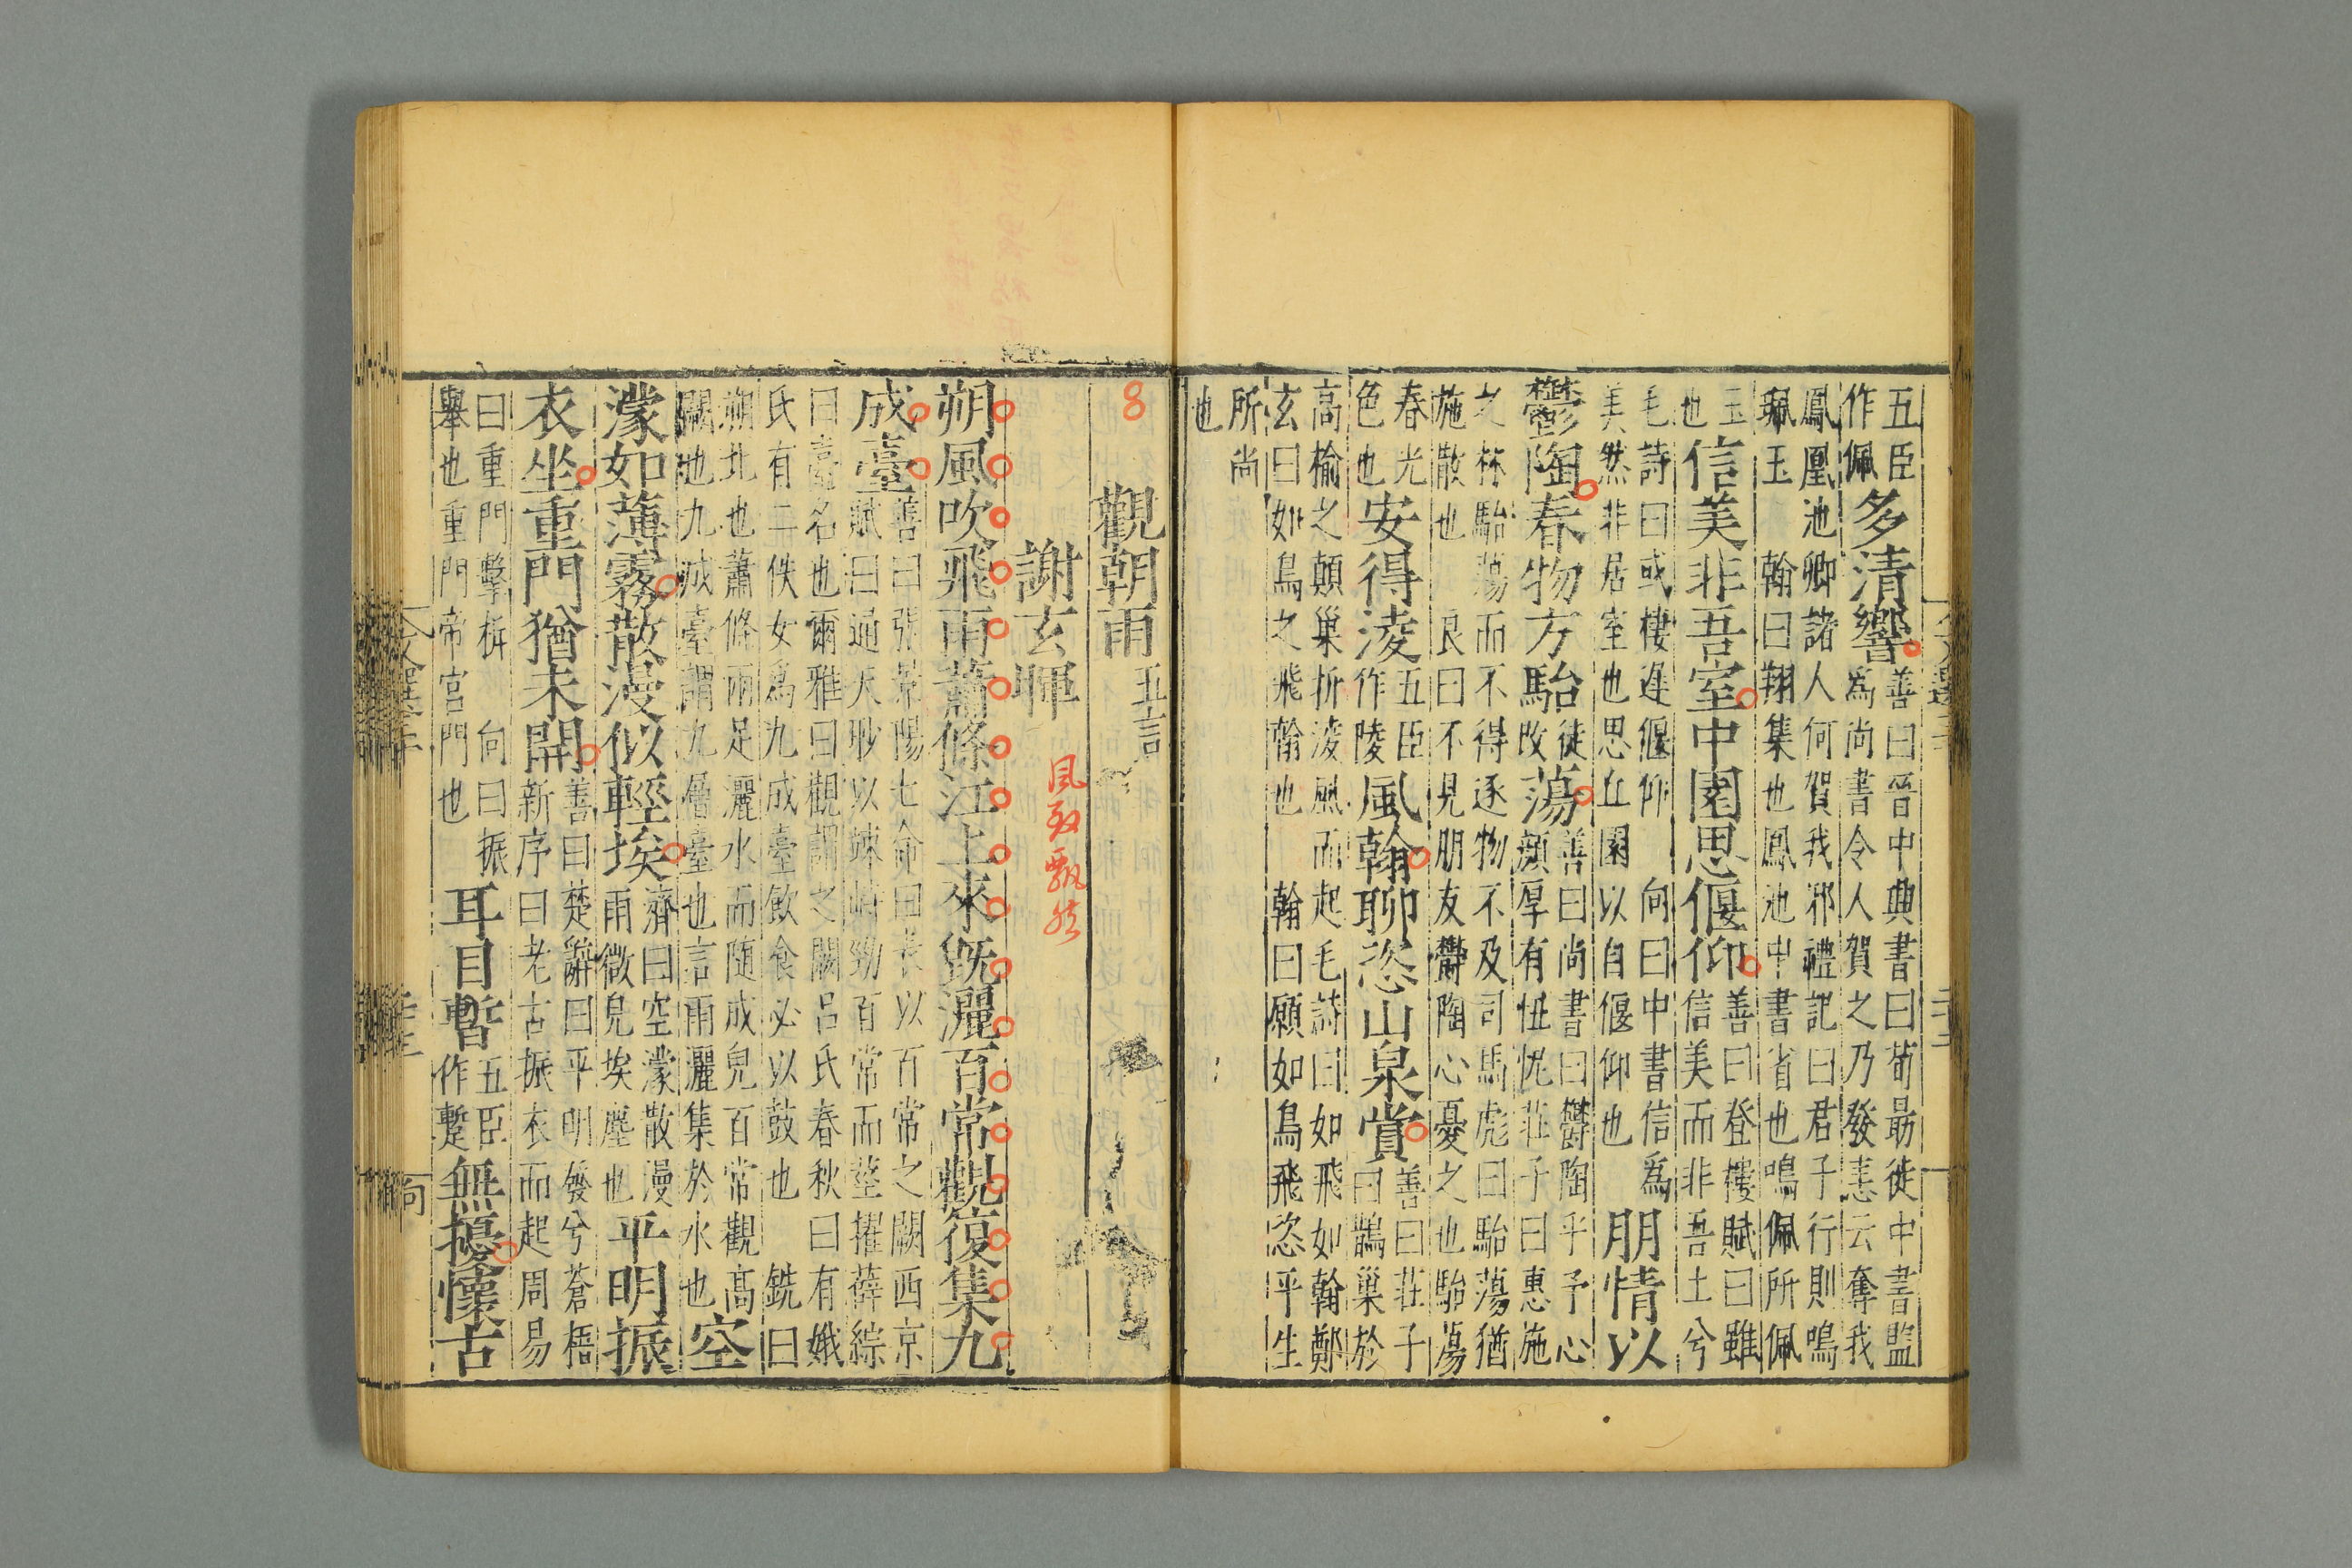 五臣作佩多清響善曰晉中興書曰荀勗徙中書監為尚書令人賀之乃發恚云奪我
鳳凰池卿諸人何賀我邪禮記曰君子行則鳴珮玉 翰曰翔集也鳳池中書省也鳴佩所佩
玉也信美非吾室中園思偃仰善曰登樓賦曰雖信美而非吾土兮
毛詩曰或棲遲偃仰 向曰中書信為美然非居室也思丘園以自偃仰也朋情以
鬱陶春物方駘徒改蕩善曰尚書曰鬱陶乎予心顏厚有忸怩莊子曰惠施
之材駘蕩而不得逐物不及司馬彪曰駘蕩猶施散也 良曰不見朋友鬱陶心憂之也駘蕩
春光色也安得淩五臣作陵風翰聊恣山泉賞善曰莊子曰鵲巢於
高榆之顛巢折淩風而起毛詩曰如飛如翰鄭玄曰如鳥之飛翰也 翰曰願如鳥飛恣平生
所尚也
8
觀朝雨五言
謝玄暉
風致飄然
朔風吹飛雨蕭條江上來既灑百常觀復集九
成臺善曰張景陽七命曰表以百常之闕西京賦曰通天眇以竦峙勁百常而莖擢薛綜
曰臺名也爾雅曰觀謂之闕呂氏春秋曰有娀氏有二佚女為九成臺飲食必以鼓也 銑曰
朔北也蕭條雨足灑水而隨成皃百常觀高闕也九成臺謂九層臺也言雨灑集於水也空
濛如薄霧散漫似輕埃濟曰空濛散漫雨微皃埃塵也平明振
衣坐重門猶未開善曰楚辭曰平明發兮蒼梧新序曰老古振衣而起周易
曰重門擊柝 向曰振舉也重門帝宮門也耳目暫五臣作蹔無擾懷古